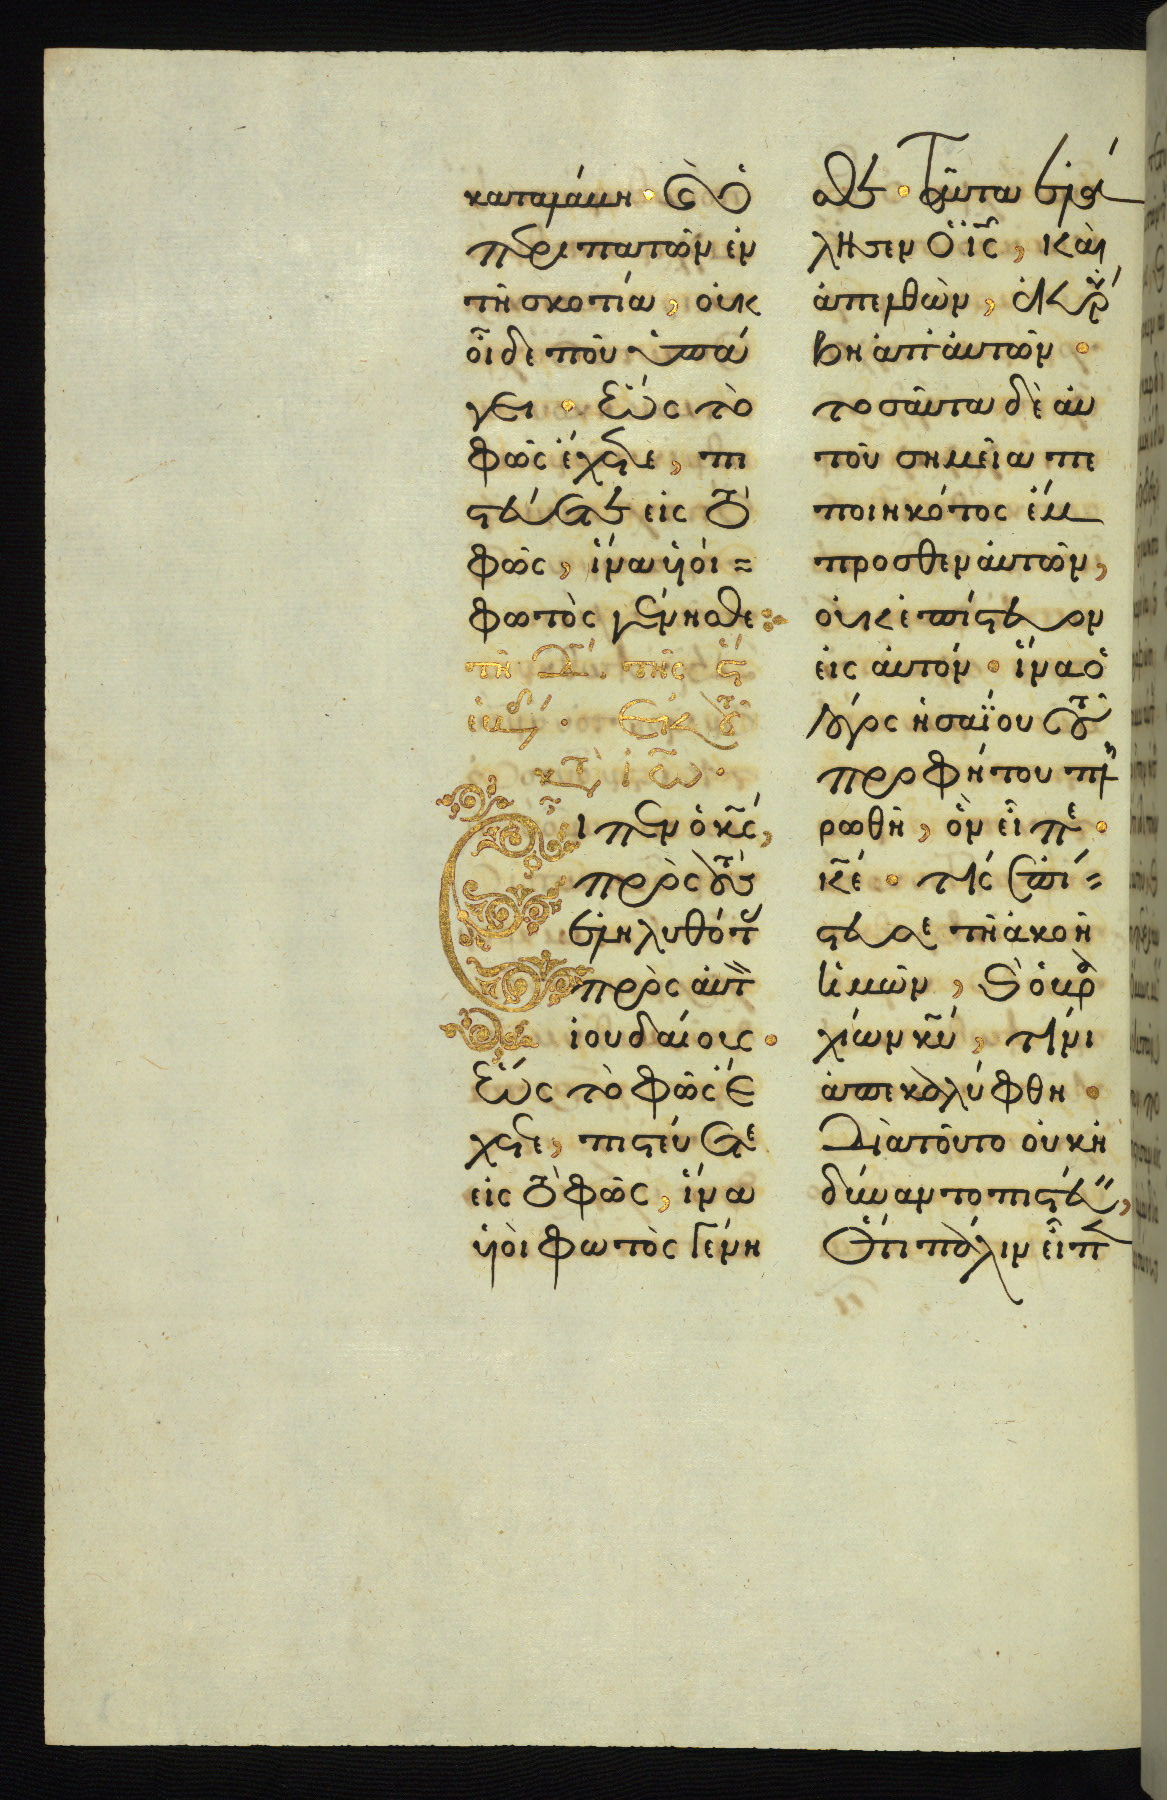 καταλάβη · καὶ ὁ
περιπατῶν ἐν
τῆ σκοτία, οὐκ
οἶδε ποῦ ὑπά
γει · ἕως τὸ
φῶς ἔχετε, πι
στεύετε εἰς τὸ
φῶς, ἵνα υἱοὶ
φωτὸς γένησθε
τῆ δ. τῆς ϛ
ἑβδ. · ἐκ τοῦ
κατὰ ἰω ·
Εἶπεν ὁ κς,
πρὸς τοὺς
ἐληλυθότας
πρὸς αὐτὸν
ἰουδαίους ·
ἕως τὸ φῶς ἔ
χετε, πιστεύετε
εἰς τὸ φῶς, ἵνα
υἱοὶ φωτὸς γένη
σθε · ταῦτα ἐλά
λησεν ὁ ις, καὶ
ἀπελθὼν, ἐκρύ
βη ἀπ' αὐτῶν ·
τοσαῦτα δὲ αὐ
τοῦ σημεῖα πε
ποιηκότος ἔμ
προσθεν αὐτῶν,
οὐκ ἐπίστευον
εἰς αὐτόν · ἵνα ὁ
λόγος ἡσαΐου τοῦ
προφήτου πλη
ρωθῆ, ὃν εἶπε ·
κε · τίς ἐπί
στευσε τῆ ἀκοῆ
ἡμῶν, καὶ ὁ βρα
χίων κυ, τίνι
ἀπεκαλύφθη ·
Διατοῦτο οὐκ ἠ
δύναντο πιστεύειν,
ὅτι πάλιν εἶπεν